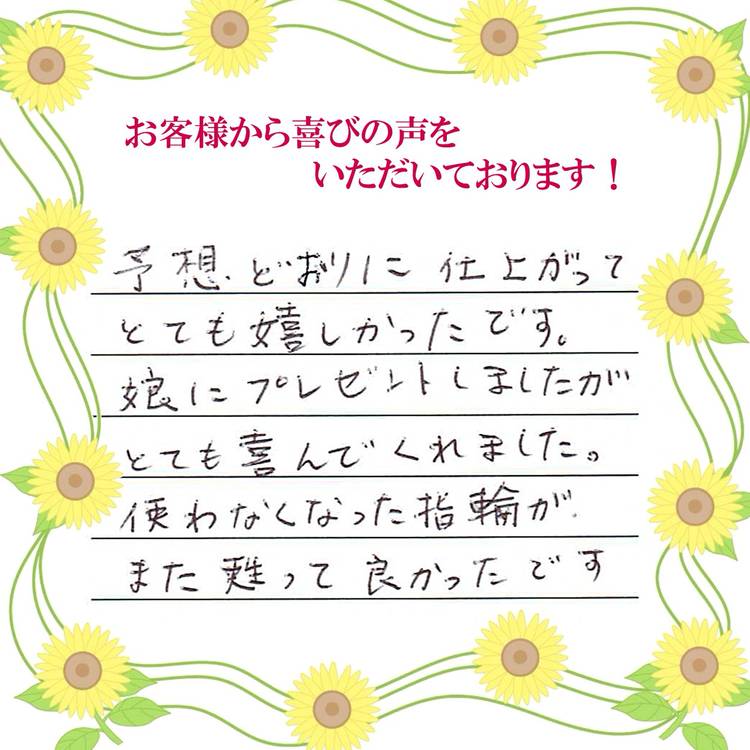 お客様から喜びの声を
いただいております！
予想どおりに仕上がって
とても嬉しかったです。
娘にプレゼントしましたが
とても喜んでくれました。
使わなくなった指輪が
また甦って良かったです